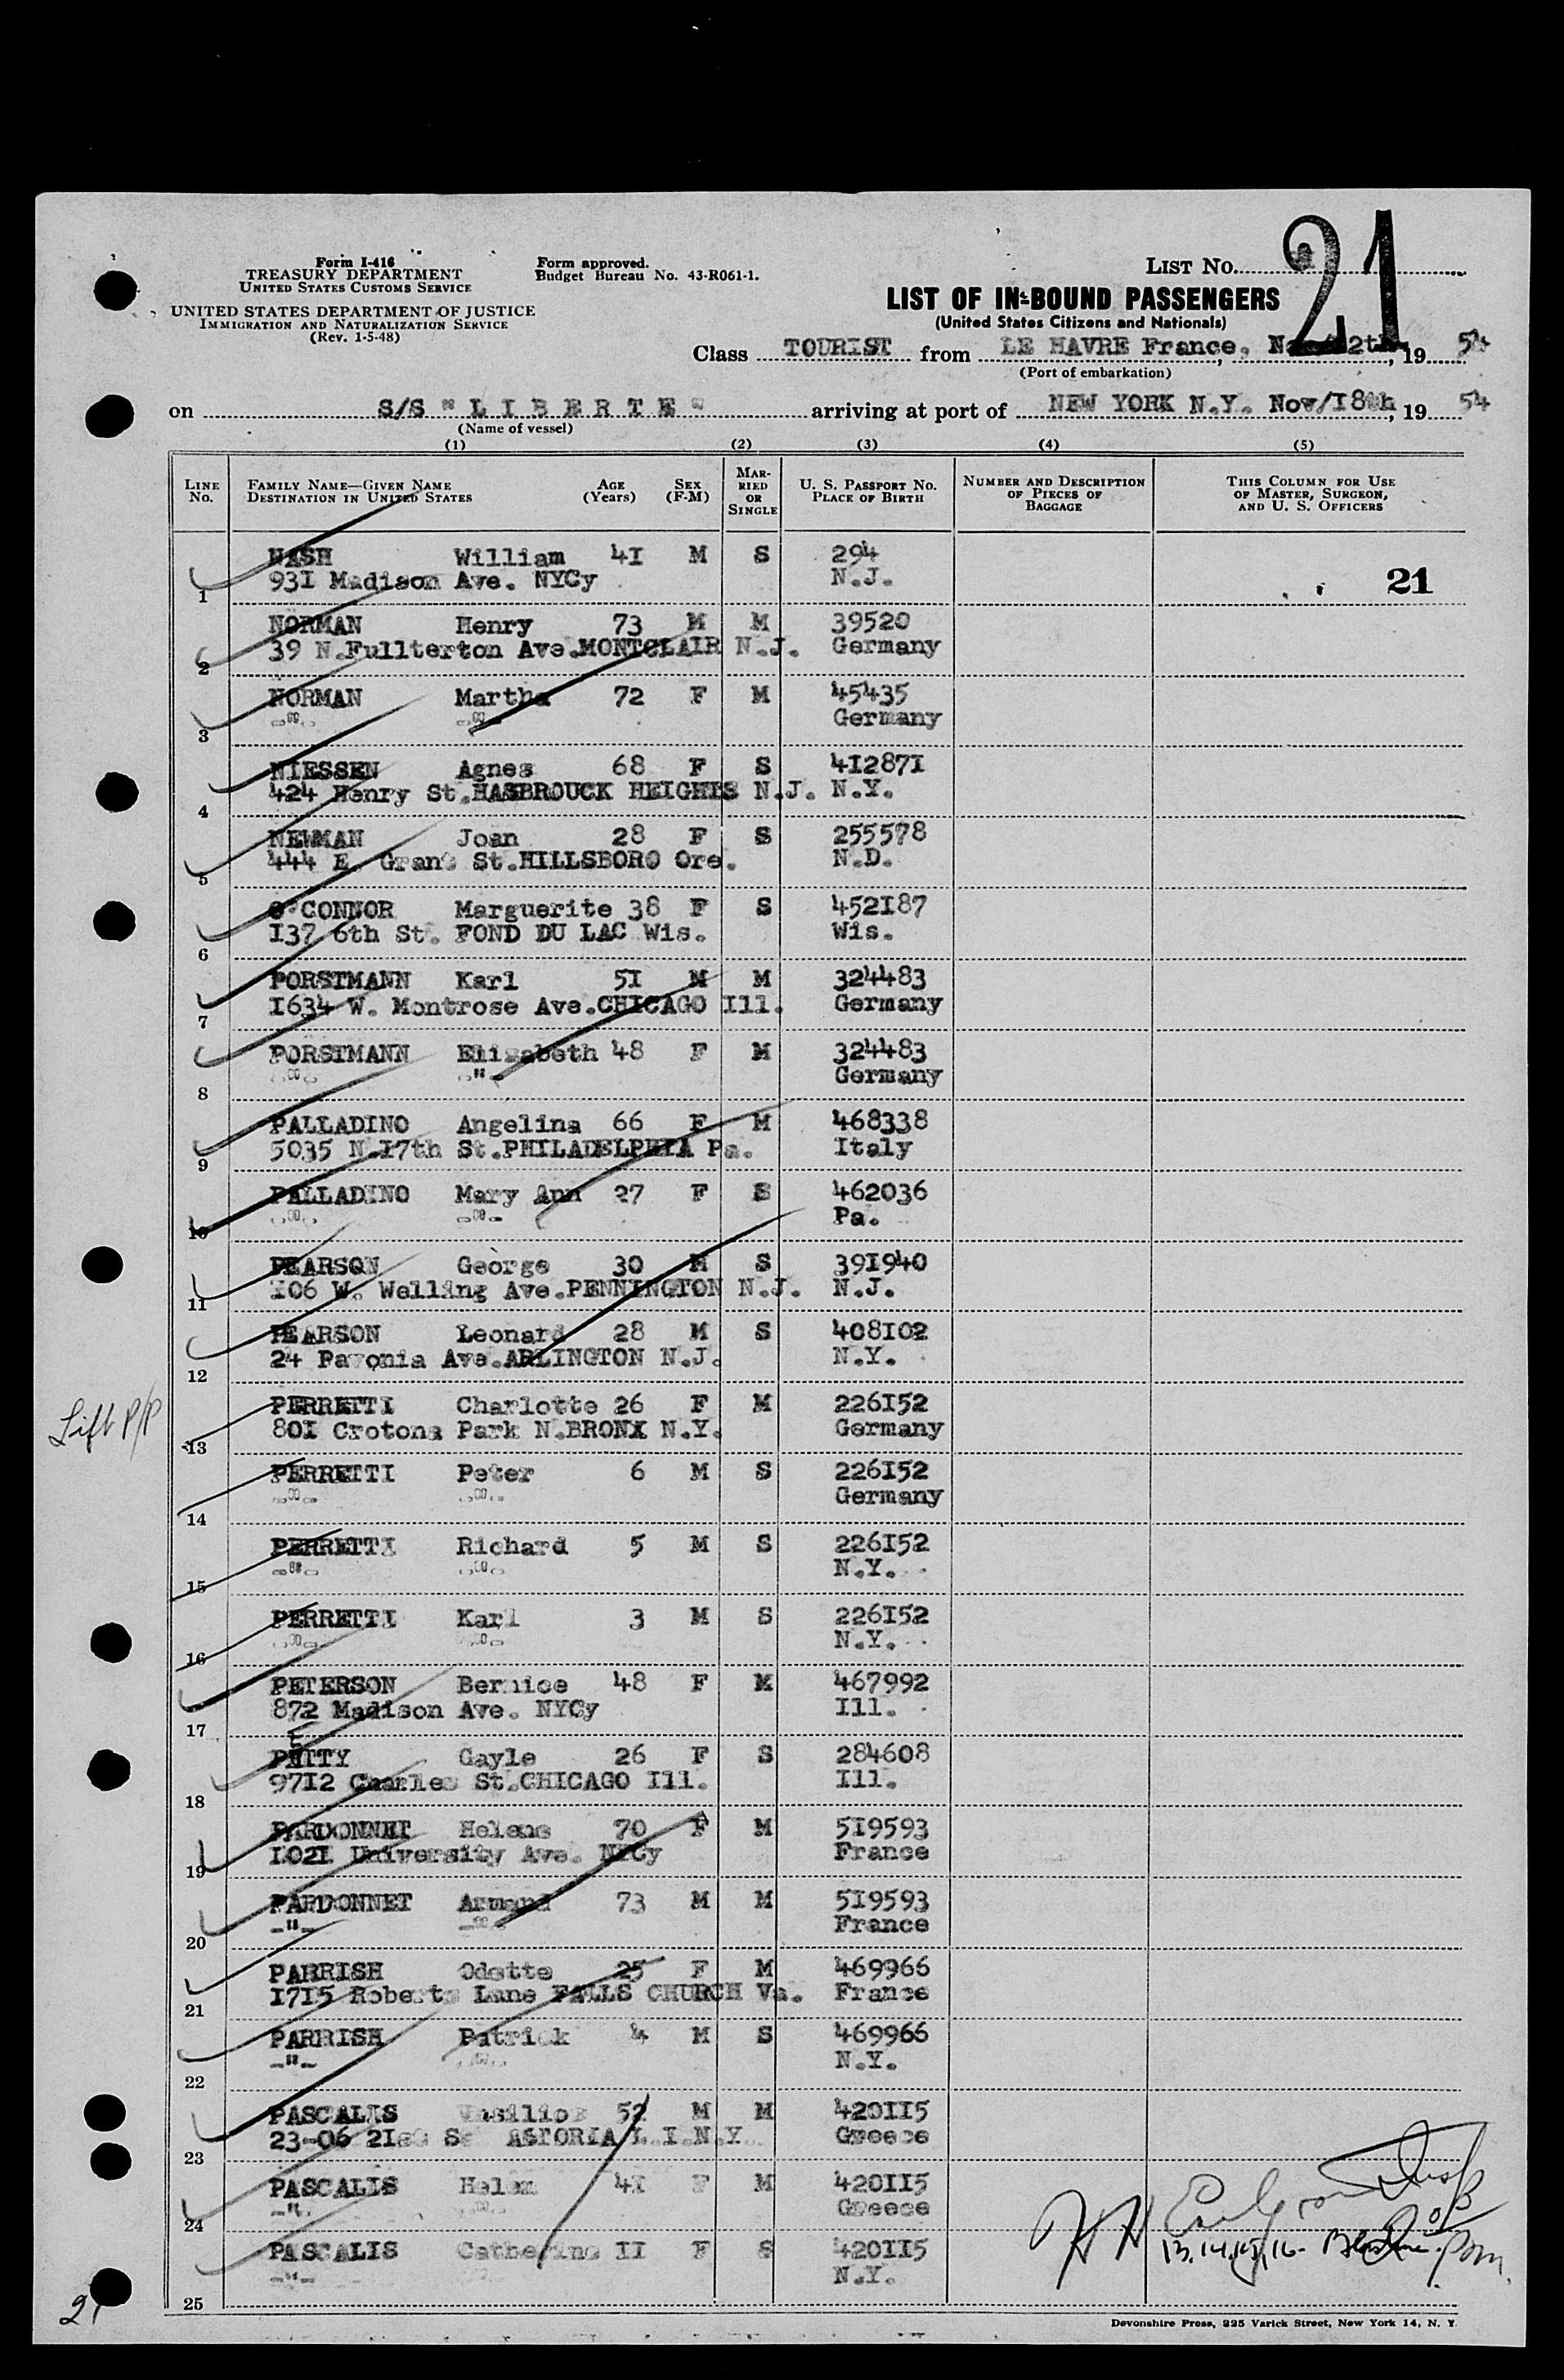 Form I-416
TREASURY DEPARTMENT
UNITED STATES CUSTOMS SERVICE
UNITED STATES DEPARTMENT OF JUSTICE
IMMIGRATION AND NATURALIZATION SERVICE
(Rev. 1-5-48)
Form approved.
Budget Bureau No. 43-R061-1.
LIST No. 21
LIST OF IN-BOUND PASSENGERS
(United States Citizens and Nationals)
Class TOURIST from LE HAVRE France, 19 54
(Port of embarkation)
on S/S "L I B E R T E" arriving at port of NEW YORK N.Y. Nov/18th, 19 54
(Name of vessel)
(1) (2) (3) (4) (5)
LINE No. FAMILY NAME—GIVEN NAME DESTINATION IN UNITED STATES AGE (Years) SEX (F-M) MARRIED OR SINGLE U. S. PASSPORT No. PLACE OF BIRTH NUMBER AND DESCRIPTION OF PIECES OF BAGGAGE THIS COLUMN FOR USE OF MASTER, SURGEON, AND U. S. OFFICERS
NASH William 41 M S 294
1 931 Madison Ave. NYCy N.J. 21
NORMAN Henry 73 M M 39520
2 39 N.Fullterton Ave.MONTCLAIR N.J. Germany
NORMAN Martha 72 F M 45435
3 -"- -"- Germany
NIESSEN Agnes 68 F S 412871
4 424 Henry St.HASBROUCK HEIGHTS N.J. N.Y.
NEWMAN Joan 28 F S 255578
5 444 E. Grant St.HILLSBORO Ore. N.D.
O'CONNOR Marguerite 38 F S 452187
6 137 6th St. FOND DU LAC Wis. Wis.
PORSTMANN Karl 51 M M 324483
7 1634 W. Montrose Ave.CHICAGO Ill. Germany
PORSTMANN Elisabeth 48 F M 324483
8 -"- -"- Germany
PALLADINO Angelina 66 F M 468338
9 5035 N.17th St.PHILADELPHIA Pa. Italy
PALLADINO Mary Ann 27 F S 462036
10 -"- -"- Pa.
PEARSON George 30 M S 391940
11 106 W. Welling Ave.PENNINGTON N.J. N.J.
PEARSON Leonard 28 M S 408102
12 24 Pavonia Ave.ARLINGTON N.J. N.Y.
Lift P/P
PERRETTI Charlotte 26 F M 226152
13 801 Crotona Park N.BRONX N.Y. Germany
PERRETTI Peter 6 M S 226152
14 -"- -"- Germany
PERRETTI Richard 5 M S 226152
15 -"- -"- N.Y.
PERRETTI Karl 3 M S 226152
16 -"- -"- N.Y.
PETERSON Bernice 48 F M 467992
17 872 Madison Ave. NYCy Ill.
PETTY Gayle 26 F S 284608
18 9712 Charles St.CHICAGO Ill. Ill.
PARDONNET Helene 70 F M 519593
19 1021 University Ave. NYCy France
PARDONNET Armand 73 M M 519593
20 -"- -"- France
PARRISH Odette 25 F M 469966
21 1715 Roberts Lane FALLS CHURCH Va. France
PARRISH Patrick 4 M S 469966
22 -"- -"- N.Y.
PASCALIS Vasilios 52 M M 420115
23 23-06 21st St ASTORIA L.I.N.Y. Greece
PASCALIS Helen 41 F M 420115
24 -"- -"- Greece
PASCALIS Catherine 11 F S 420115
25 -"- N.Y.
13.14.15.16-
21
Devonshire Press, 225 Varick Street, New York 14, N. Y.